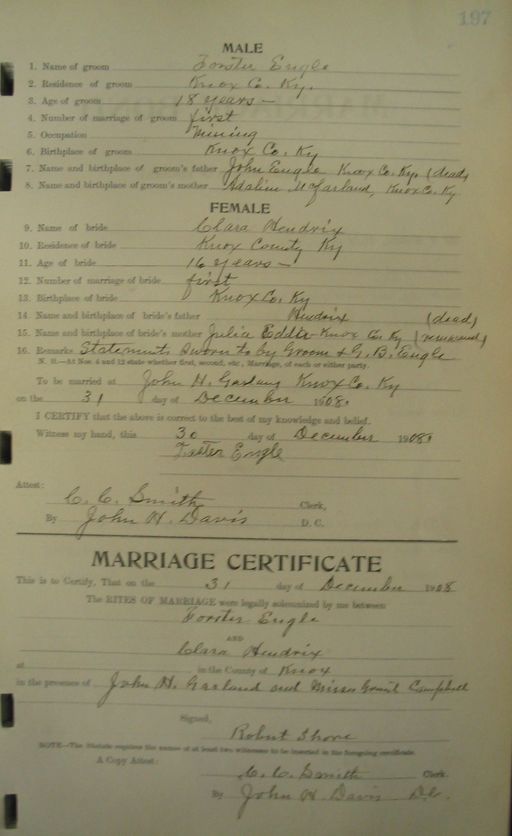 197
MALE
1. Name of groom Forster Engle
2. Residence of groom Knox Co. Ky.
3. Age of groom 18 years —
4. Number of marriage of groom first
5. Occupation Mining
6. Birthplace of groom Knox Co. Ky
7. Name and birthplace of groom's father John Engle Knox Co. Ky. (dead)
8. Name and birthplace of groom's mother Adaline McFarland, Knox Co. Ky
FEMALE
9. Name of bride Clara Hendrix
10. Residence of bride Knox County Ky
11. Age of bride 16 years —
12. Number of marriage of bride first
13. Birthplace of bride Knox Co. Ky
14 Name and birthplace of bride's father Hendrix (dead)
15. Name and birthplace of bride's mother Julia Knox Co. Ky
16. Remarks Statements sworn to by Groom & G. B. Engle
N. B.—At Nos. 4 and 12 state whether first, second, etc., Marriage, of each or either party.
To be married at John H. Garland Knox Co. Ky
on the 31 day of December 1908.
I CERTIFY that the above is correct to the best of my knowledge and belief.
Witness my hand, this 30 day of December 1908.
Engle
Attest:
C. C. Smith Clerk,
By John H. Davis D. C.
MARRIAGE CERTIFICATE
This is to Certify, That on the 31 day of December 1908
The RITES OF MARRIAGE were legally solemnized by me between
Forster Engle
AND
Clara Hendrix
at in the County of Knox
in the presence of John H. Garland and Campbell
Signed,
Robert
NOTE—The Statute requires the names of at least two witnesses to be inserted in the foregoing certificate.
A Copy Attest:
C. C. Smith Clerk.
By John H Davis D.C.